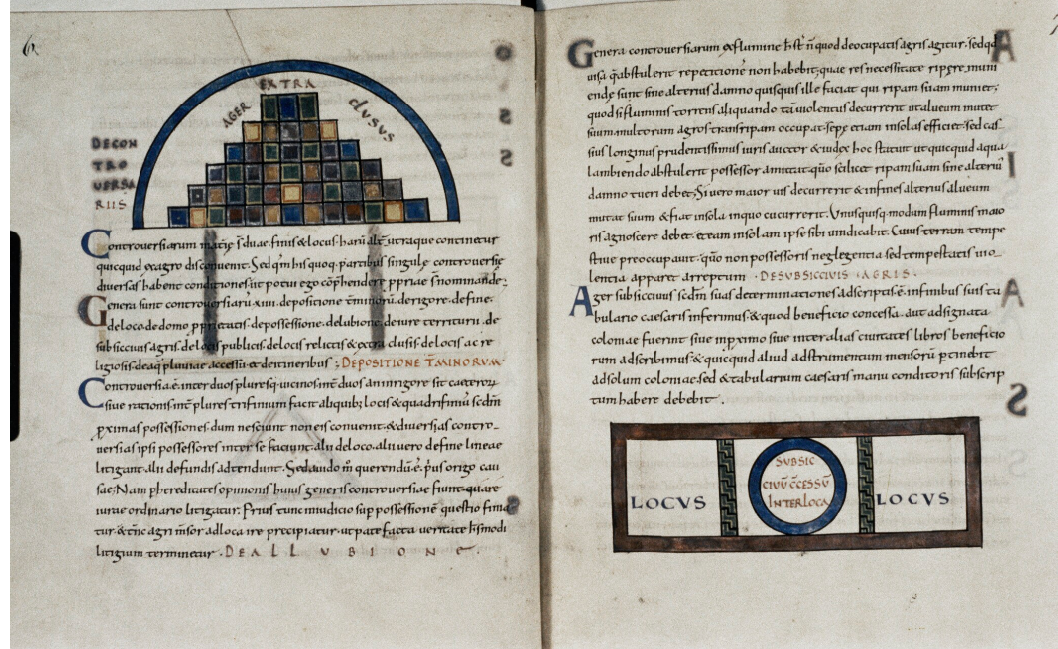 6
EXTRA
AGER
clusus
DECON
TRO
UERSA
RIIS
Controuersiarum materiae sunt duae finis & locus. harum alt utraque continetur
quicquid ex agro disconuenit. Sed qm his quoq. partibus singule controuersie
diuersas habent conditiones. ut potui ego cōphendere ppriae s nominande.
Genera sunt controuersiarū xiiii. depositione t̄minorū. derigore. define.
deloco. demodo. pprietatis. depossessione. delubione. deiure territorii. de
subsiciuis agris. delocis publicis. delocis relictis & extra clusis. delocis ac re
ligiosis. deaq pluuiae accessu. et deitineribus : DEPOSITIONE T̄MINORUM
Controuersia ē. inter duos pluresq. uicinos. int duos an inrigore sit caeterorum
siue rationis. int plures trifinium facit aliquib; locis & quadrifiniū. scdm
pximas possessiones. dum nesciunt non eis conuenit. & diuersas contro-
uersias ipsi possessores inter se faciunt. alii deloco. alii uero define lineae
litigant. alii defundis adtendunt. Sed audo m querendū ē. prius origo cau
sae. Nam p hereditates opinionis huius generis controuersiae fiunt. quare
iurae ordinario litigatur. Prius tunc in iudicio sup possessione questio fini&
tur. & tc̄ agri msor ad loca ire precipiatur. ut patefacta ueritate hsmodi
litigium terminetur. DEALLUBIONE.
Genera controuersiarum exflumine h st n quod deoccupatis agris agitur. sed qd
uis aq abstulerit repeticionē non habebit; quae res necessitate ripere muni
ende sunt sine alterius damno quisquis ille faciat qui ripam suam muniet;
quod si fluminis torrens aliquando tā uiolentus decurrerit ut alueum mutet
suum. multorum agros trans ripam occupat. sepe etiam insolas efficiet. sed cas
sius longinus prudentissimus iuris auctor & iudex hoc statuit ut quicquid aqua
lambiendo abstulerit possessor amittat. quō scilicet ripam suam sine alteriū
damno tueri debet. Si uero maior uis decurrerit & infines alterius alueum
mutat suum & fiat insola in quo cucurrerit. Unusquisq. modum fluminis maio
ris agnoscere debet. et eam insolam ipse sibi uindicabit. Cuius terram tempe
stiue preoccupauit. quō non possessoris neglegentia sed tempestatis uio
lentia apparet arreptum. DESUBSICCIUIS AGRIS.
Ager subsicciuus scdm suas determinationes adscriptis ē. infimbus suis ta
bulario caesaris inferimus. & quod beneficio concessa. aut adsignata
coloniae fuerint siue inpximo siue inter alias ciuitates libros beneficio
rum adscribimus & quicquid aliud ad strumentum mensorū ptinebit
ad solum coloniae. sed & tabularium caesaris manu conditoris subscrip
tum habere debebit.
LOCVS
SUBSIC
CIUŪ C̄CESSŪ
INTERLOCA
LOCVS